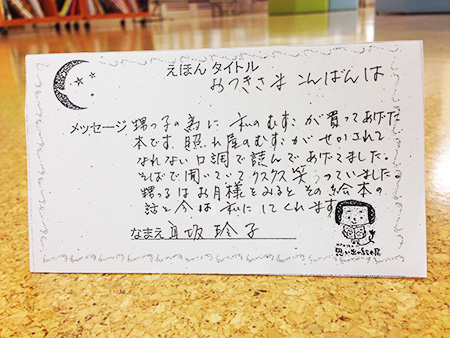 えほんタイトル
おつきさま こんばんは
メッセージ 甥っ子の為に 私のむすこが買ってあげた
本です。照れ屋のむすこが せかされて
なれない口調で読んであげてました。
そばで聞いていてクスクス笑っていました。
甥っ子はお月様をみるとその絵本の
話を今は私にしてくれます。
なまえ 坂 玲子